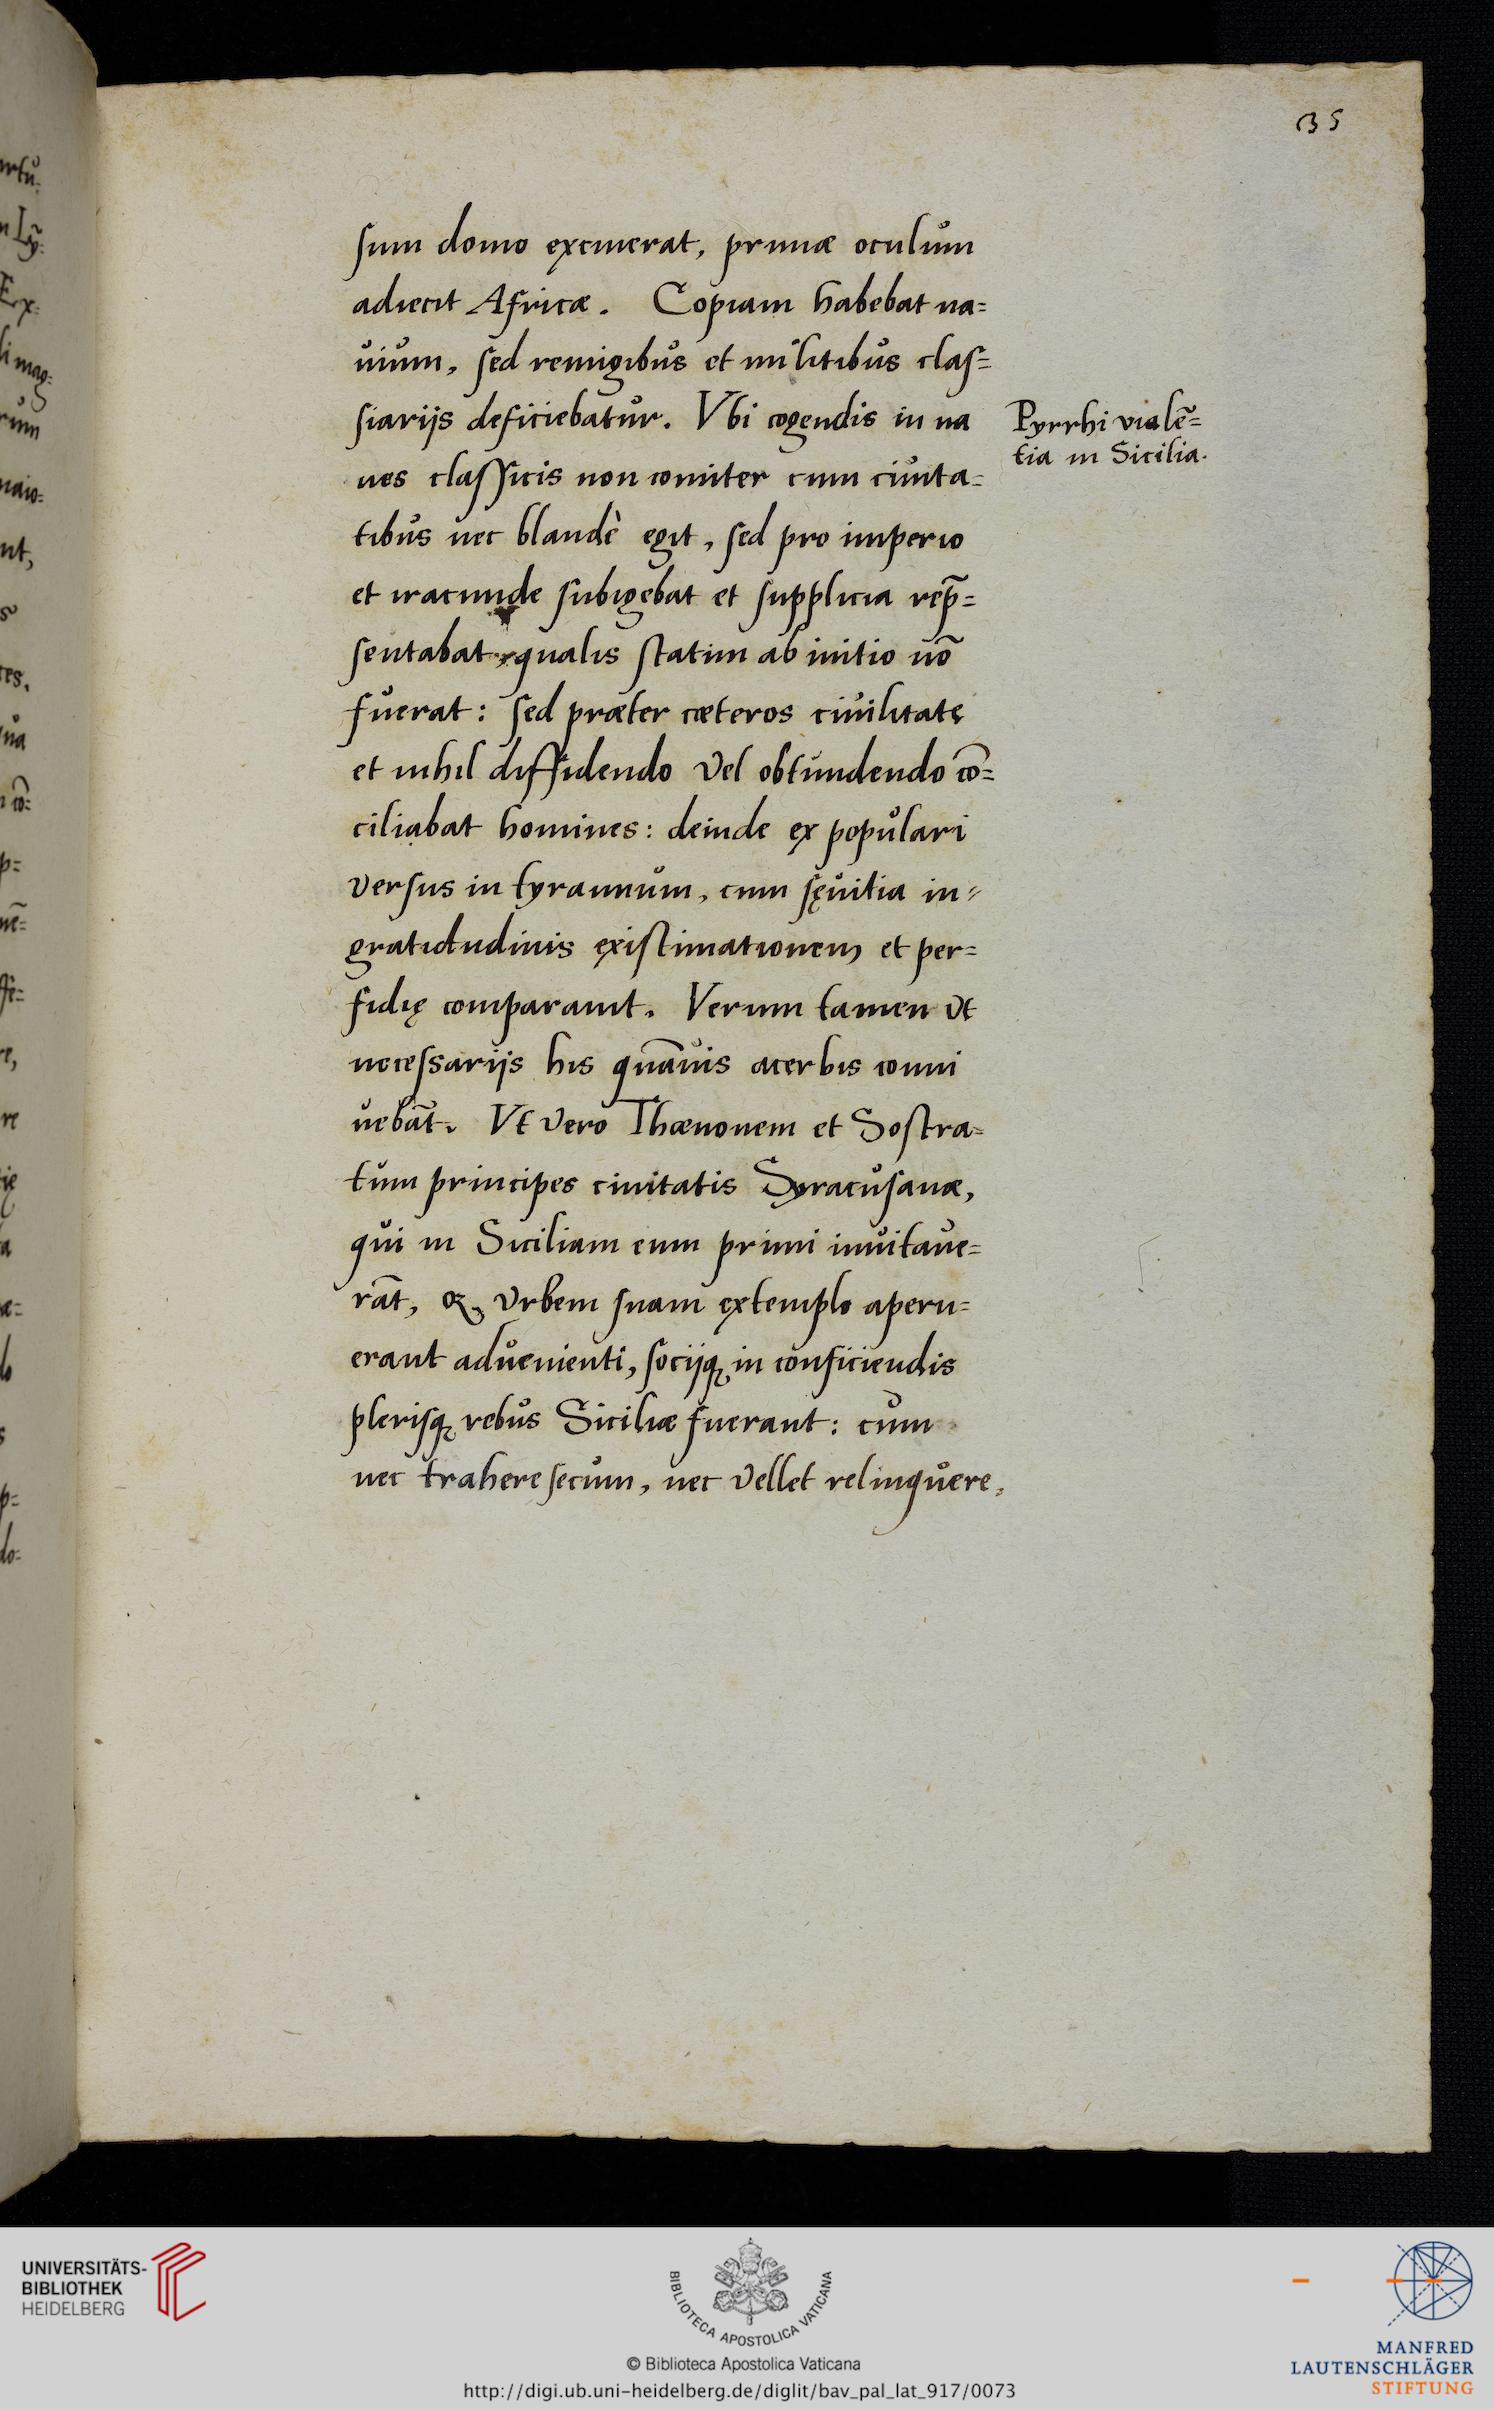 35
sum domo exciuerat, primæ oculum
adiecit Africæ. Copiam habebat na=
uium, sed remigibus et militibus clas=
siarijs deficiebatur. Vbi cogendis in na
ues classicis non comiter cum ciuita=
tibus nec blandè egit, sed pro imperio
et iracunde subigebat et supplicia rep̃=
sentabat, qualis statim ab initio nõ
fuerat: sed præter cæteros ciuilitate
et nihil diffidendo vel obtundendo cõ=
ciliabat homines: deinde ex populari
versus in tyrannum, cum sęuitia in=
gratidudinis existimationem et per=
fidię comparauit. Verum tamen vt
necessarijs his quãuis acerbis conni
uebãt. Vt vero Thænonem et Sostra=
tum principes ciuitatis Syracusanæ,
qui in Siciliam eum primi inuitaue=
rãt, & vrbem suam extemplo aperu=
erant aduenienti, socijq; in conficiendis
plerisq; rebus Siciliæ fuerant: cum
nec trahere secum, nec vellet relinquere,
Pyrrhi vialẽ=
tia in Sicilia.
UNIVERSITÄTS-
BIBLIOTHEK
HEIDELBERG
BIBLIOTECA APOSTOLICA VATICANA
© Biblioteca Apostolica Vaticana
http://digi.ub.uni-heidelberg.de/diglit/bav_pal_lat_917/0073
MANFRED
LAUTENSCHLÄGER
STIFTUNG